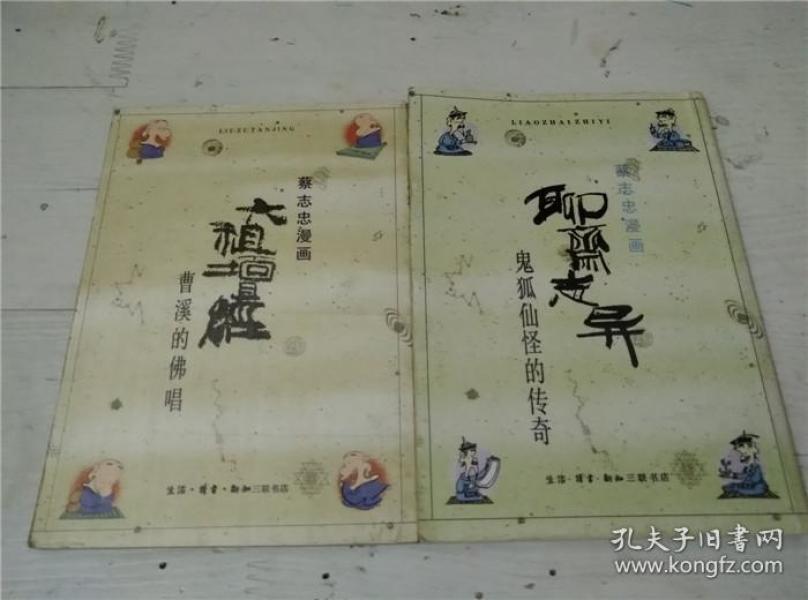 LIUZUTANJING
蔡志忠漫画
六祖坛经
曹溪的佛唱
生活·读书·新知三联书店
LIAOZHAIZHIYI
蔡志忠漫画
聊齋志异
鬼狐仙怪的传奇
生活·读书·新知三联书店
孔夫子旧书网
www.kongfz.com